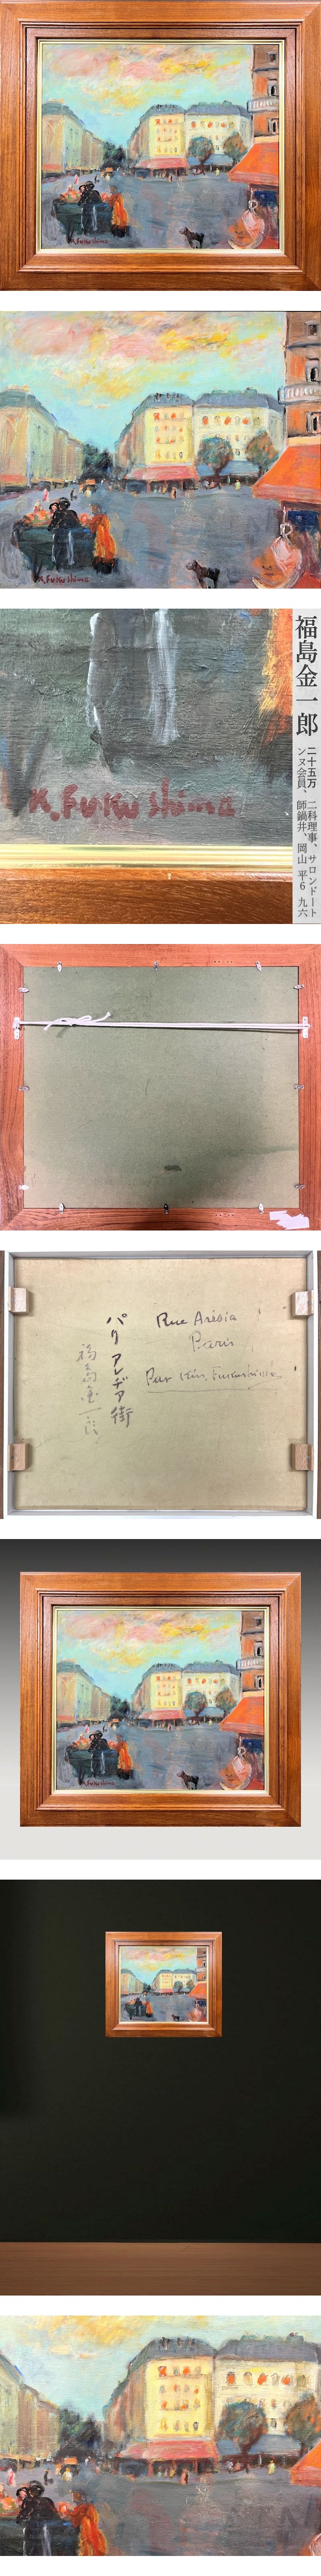 K.Fukushima
K.Fukushima
K.Fukushima
福島金一郎
二十五万 二科理事、サロンドート
ンヌ会員、師鍋井、岡山 平6 九六
Rue Arésia
Paris
Par Kin. Fukushima
パリ アレヂア街
福島金一郎
K.Fukushima